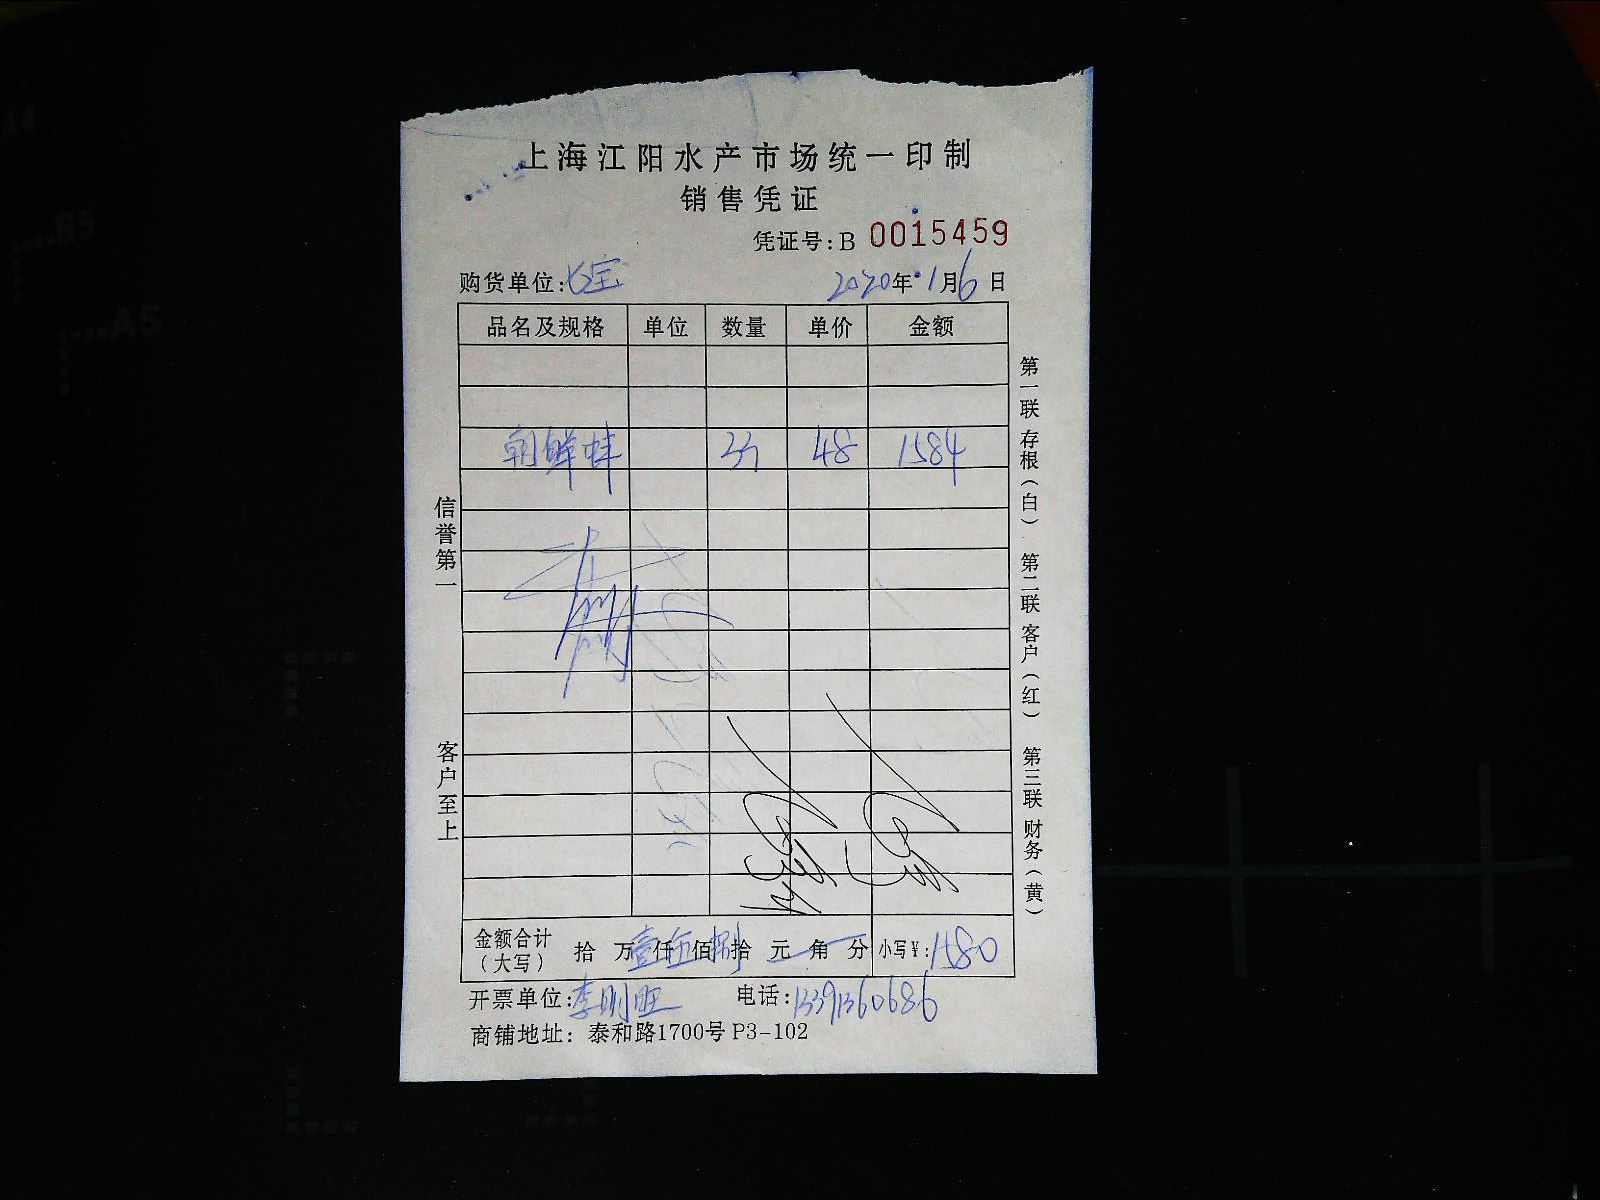 上海江阳水产市场统一印制
销售凭证
凭证号:B 0015459
购货单位: 2020年1月6日
品名及规格 单位 数量 单价 金额
朝鲜蚌 33 48 1584
信誉第一
客户至上
第一联 存根(白) 第二联 客户(红) 第三联 财务(黄)
金额合计(大写) 拾 万壹仟伍佰捌拾 元 角 分 小写¥:1580
开票单位:李刚旺 电话:13391360686
商铺地址: 泰和路1700号 P3-102